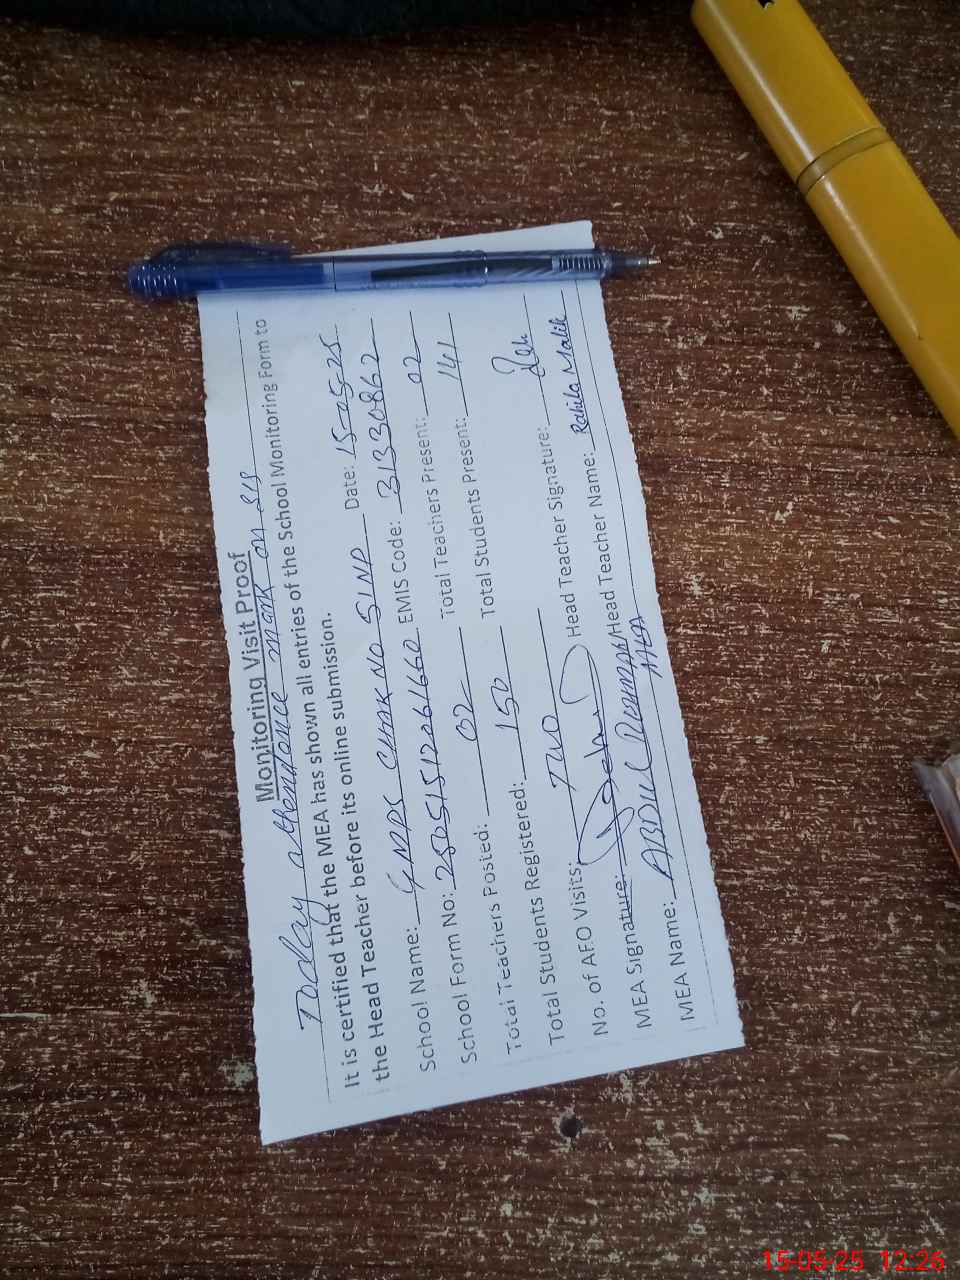 Monitoring Visit Proof
Today attendance mark on SIS
It is certified that the MEA has shown all entries of the School Monitoring Form to
the Head Teacher before its online submission. Date: 15-05-25
School Name: GMPS CHAK NO 51NP EMIS Code: 31330862
School Form No: 25051512061660 Total Teachers Present: 02
Total Teachers Posted: 02 Total Students Present: 141
Total Students Registered: 150
No. of AFO Visits: TWO Head Teacher Signature:
MEA Signature: Head Teacher Name: Rahila Malik
MEA Name: ABDUL MEA
15-05-25 12:26